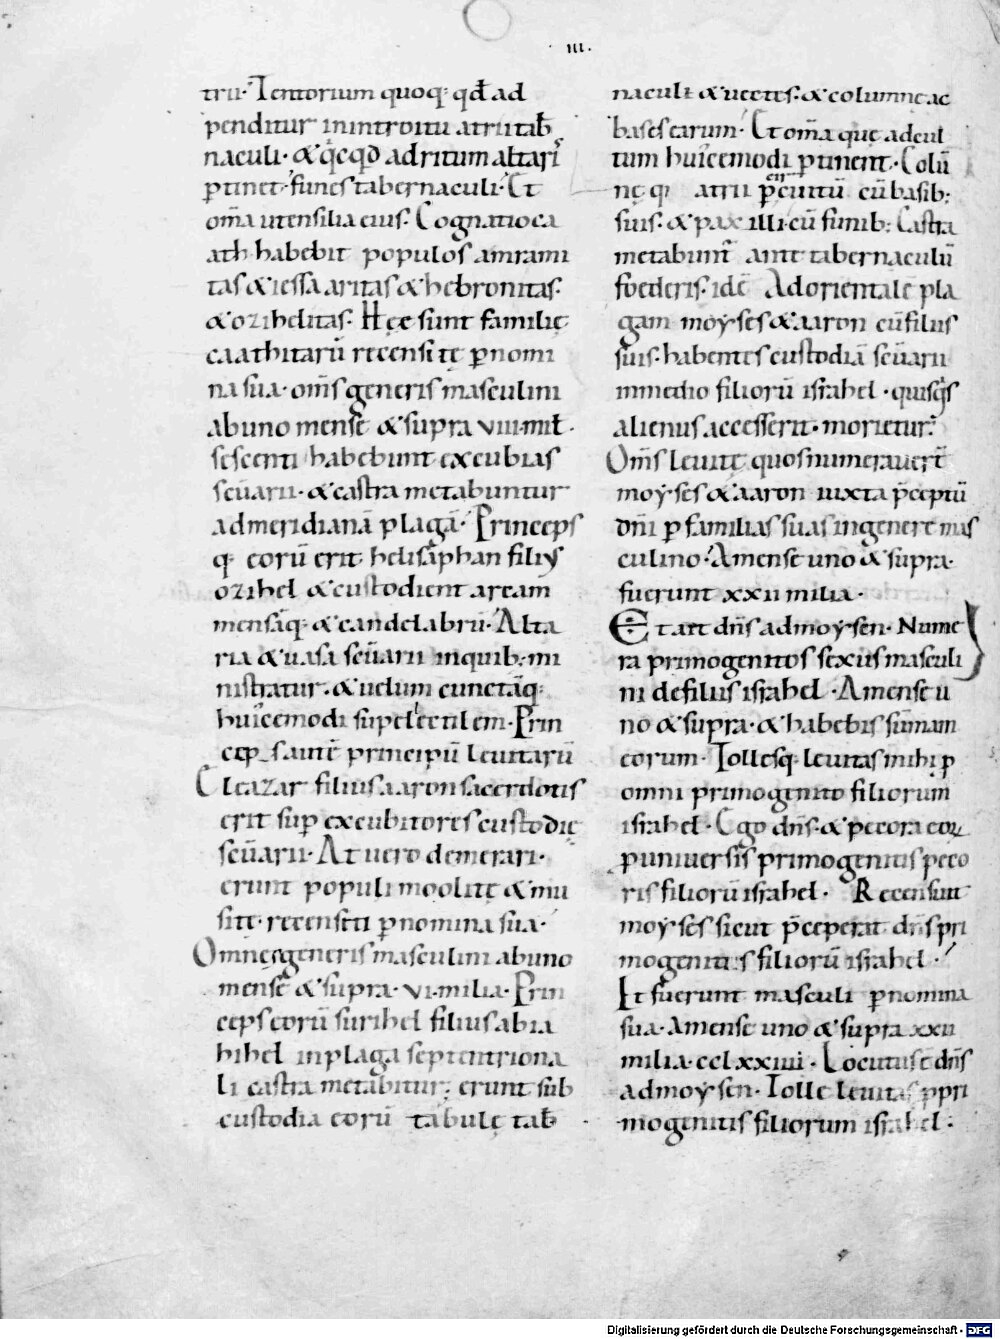 .III.
trii. Tentorium quoq; qd ad
penditur inintroitu atrii tab
naculi. & qcqd adritum altari
ptinet. funes tabernaculi. Et
oma utensilia eius. Cognatio ca
ath habebit populos amrami
tas & iessaaritas & hebronitas.
& ozihelitas. Hęe sunt familię
caathitarū recensite pnomi
na sua. oms generis masculini
abuno mense & supra VIII. mil.
sescenti habebunt excubias
scuarii. & castra metabuntur
admeridianā plagā. Princeps
q; eorū erit helisaphan filius
ozihel & custodient arcam
mensāq; & candelabrū. Alta
ria & uasa scuarii inquib; mi
nistratur. & uelum cunctāq;
huicemodi supellectilem. Prin
cep_s autē principū leuitarū
Eleazar filius aaron sacerdotis
erit sup excubitores custodię
scuarii. At uero demerari.
erunt populi moolitę & mu
sitę. recensiti pnomina sua.
Omnes generis masculini abuno
mense & supra. VI. milia. Prin
ceps eorū surihel filius abia
hihel inplaga septentriona
li castra metabitur; erunt sub
custodia eorū tabulę tab
naculi & uectes. & columnę ac
bases earum. Et oma que adcul
tum huicemodi ptinent. Colū
nę q; atrii pcircuitū cū basib;
suis. & paxilli cū funib; Castra
metabunt ante tabernaculū
foederis. id ē Adorientale pla
gam moyses & aaron cū filiis
suis. habentes custodiā scuarii
inmedio filiorū israhel. quisqs
alienus accesserit. morietur.
Oms leuitę quos numerauert
moyses & aaron iuxta pceptū
dni p familias suas ingenere mas
culino. Amense uno & supra.
fuerunt XXII milia.
Et ait dns admoysen. Nume
ra primogenitos sexus masculi
ni defiliis israhel. Amense u
no & supra. & habebis sūmam
eorum. Tollesq; leuitas mihi p
omni primogenito filiorum
israhel. Ego dns. & pecora eor
p uniuersis primogenitis peco
ris filiorū israhel. Recensuit
moyses sicut pceperat dns pri
mogenitos filiorū israhel.
Et fuerunt masculi pnomina
sua. Amense uno & supra XXII
milia. CCLXXIIII. Locutus ē dns
admoysen. Tolle leuitas p pri
mogenitis filiorum israhel.
Digitalisierung gefördert durch die Deutsche Forschungsgemeinschaft - DFG